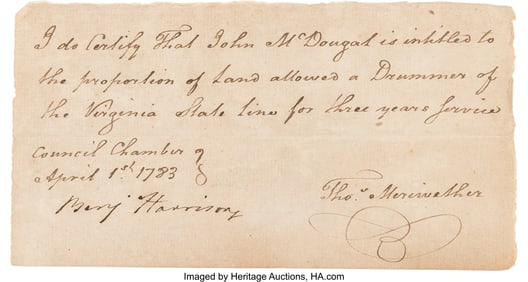 I do Certify That John McDougal is intitled to
the proportion of Land allowed a Drummer of
the Virginia State line for three years Service
Council Chamber
April 1st. 1783
Benj Harrison
Thos. Meriwether
Imaged by Heritage Auctions, HA.com